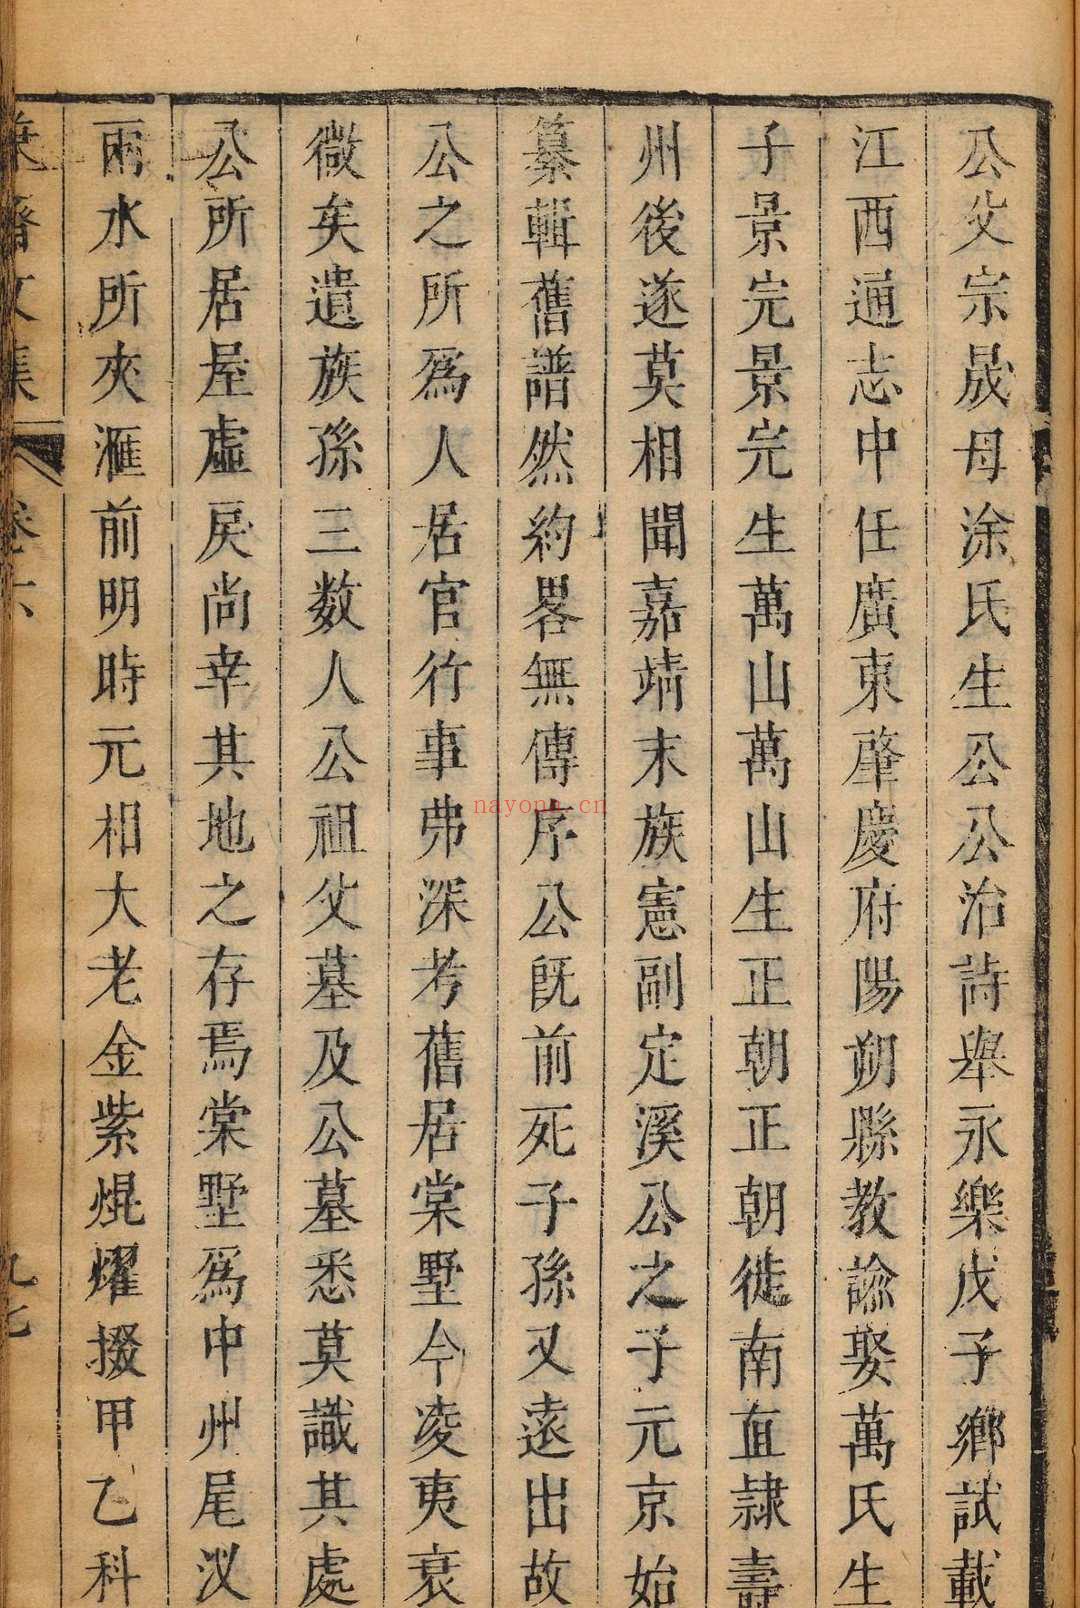 公父宗晟母涂氏生公公治詩舉永樂戊子鄉試載
江西通志中任廣東肇慶府陽朔縣教諭娶萬氏生
子景完景完生萬山萬山生正朝正朝徙南直隷壽
州後遂莫相聞嘉靖末族憲副定溪公之子元京始
纂輯舊譜然約畧無傳序公既前死子孫又遠出故
公之所爲人居官行事弗深考舊居棠墅今凌夷衰
微矣遺族孫三数人公祖父墓及公墓悉莫識其處
公所居屋虛戾尚幸其地之存焉棠墅爲中州尾汊
兩水所夾滙前明時元相大老金紫焜燿掇甲乙科
齋文集
卷六
九七
nayona.cn